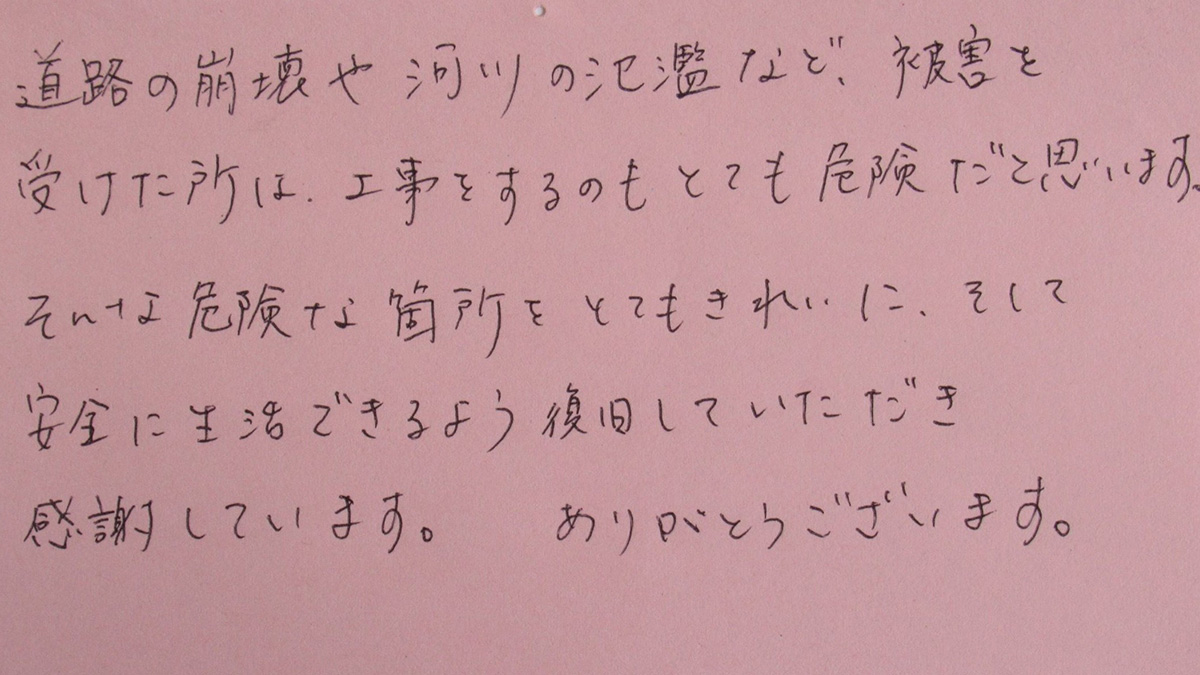 道路の崩壊や河川の氾濫など、被害を
受けた所は、工事をするのもとても危険だと思います。
そんな危険な箇所をとてもきれいに、そして
安全に生活できるよう復旧していただき
感謝しています。 ありがとうございます。